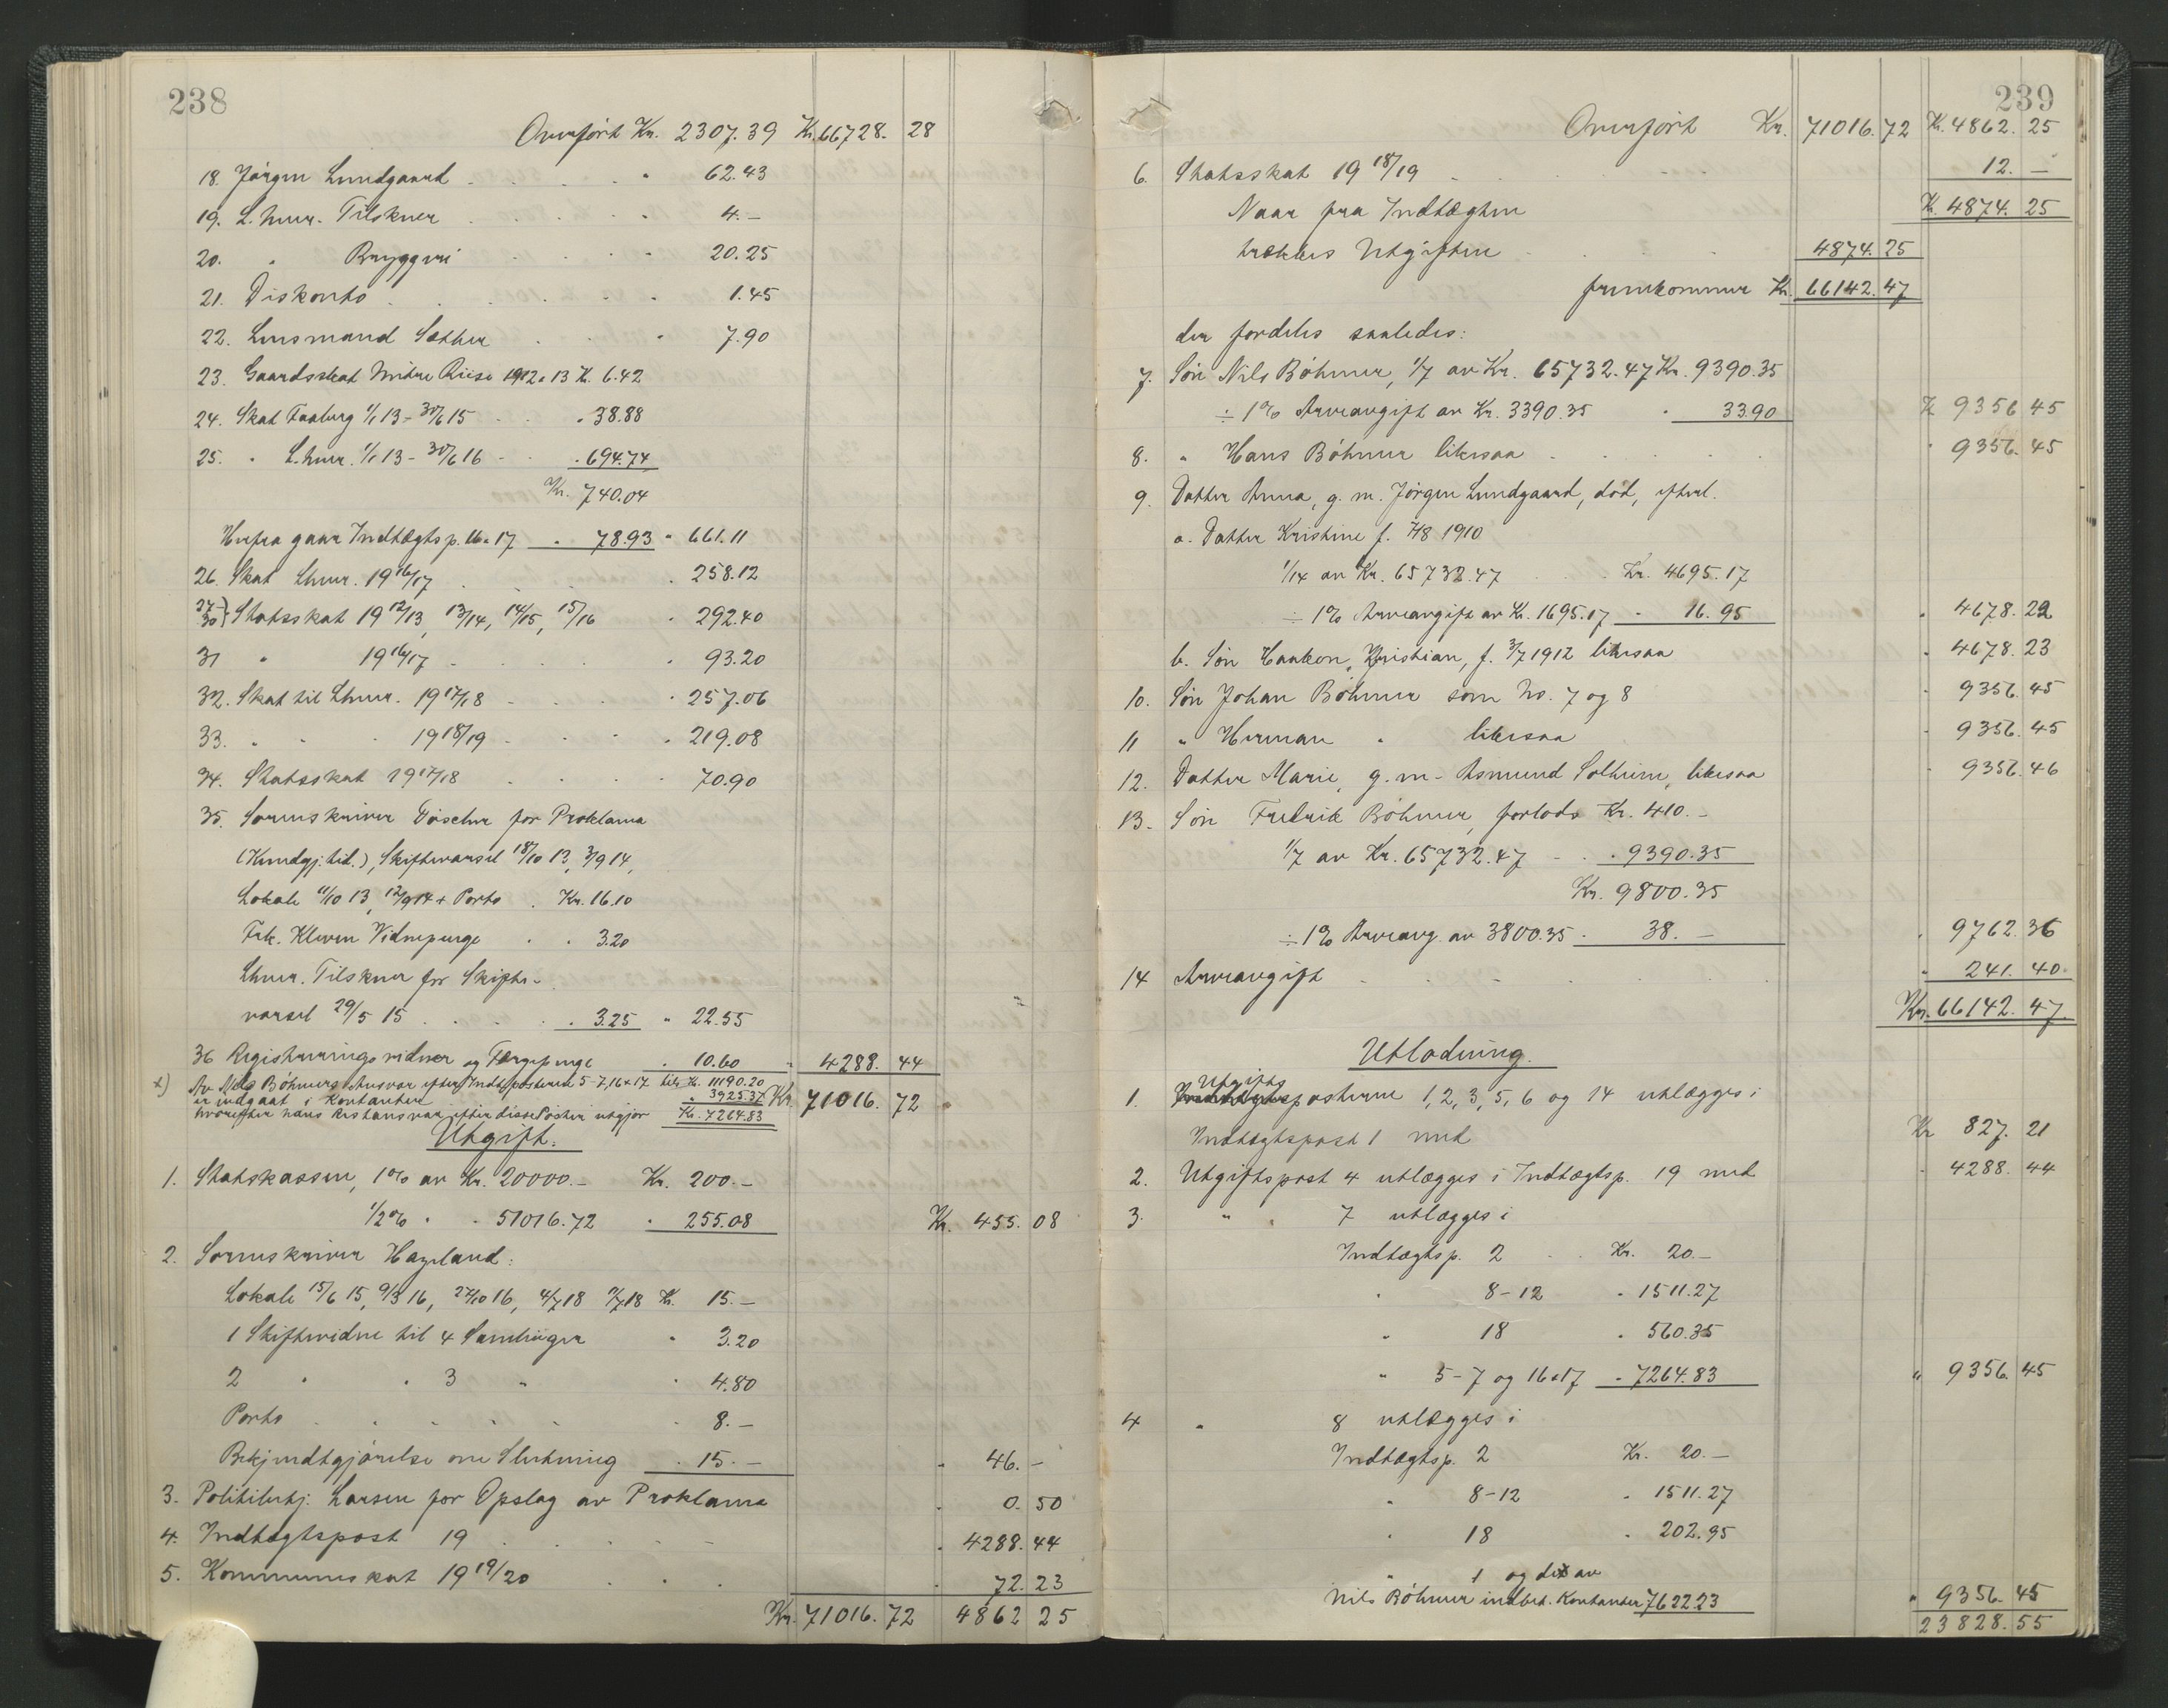 238
Overført Kr. 2307.39 Kr. 66728. 28
18. Jørgen Lundgaard 62.43
19. L.hmr. Tilskuer 4.–
20. " Bryggeri 20.25
21. Diskonto 1.45
22. Lensmand Sæther 7.90
23. Gaardsskat Nitre Riise 1912 a 13 K. 6.42
24. Skat Faaberg 1/1 13 – 30/6 15 38.88
25. " L.hmr. 1/1 13 – 30/6 16 694.74
Kr. 740.04
Herfra gaar Indtægtsp. 16 a 17 78.93 " 661.11
26. Skat Lhmr. 19 16/17 258.12
27–30} Statsskat 19 12/13, 13/14, 14/15, 15/16 292.40
31 " 19 16/17 93.20
32. Skat til Lhmr. 19 17/18 257.06
33. " " 19 18/19 219.08
34. Statsskat 19 17/18 70.90
35. Sorenskriver Döscher for Proklama
(Kundgj.tid.), Skiftevarsel 18/10 13, 3/9 14,
Lokale 11/10 13, 12/9 14 + Porto Kr. 16.10
Frk. Kleven Vidnepenge 3.20
Lhmr. Tilskuer for Skifte-
varsel 29/5 15 3.25 " 22.55
36 Registreringsvidner og Færgepenge 10.60 " 4288. 44
x) Av Nils Böhmers Ansvar efter Indtægtsposterne 5-7, 16 + 17 tils. Kr. 11190.20
er indgaat i Kontanter " 3925.37 Kr. 71016. 72
hvorefter hans Restansvar efter disse Poster utgjør Kr. 7264.83
Utgift.
1. Statskassen, 1% av Kr. 20000.– Kr. 200.–
1/2% " " 51016.72 " 255.08 Kr. 455. 08
2. Sorenskriver Hageland:
Lokale 15/6 15, 9/3 16, 27/10 16, 4/7 18 7/7 18 K. 15.–
1 Skiftevidne til 4 Samlinger " 3.20
2 " " 3 " " 4.80
Porto " 8.–
Bekjendtgjørelse om Slutning 15.– " 46. –
3. Politibetj. Larsen for Opslag av Proklama " 0. 50
4. Indtægtspost 19 " 4288. 44
5. Kommuneskat 19 19/20 " 72. 23
Kr. 71016. 72 4862 25
239
Overført Kr. 71016. 72 Kr. 4862. 25
6. Statsskat 19 18/19 12. –
Naar fra Indtægten K. 4874. 25
trækkes Utgiften 4874. 25
fremkommer Kr. 66142. 47
der fordeles saaledes:
7. Søn Nils Böhmer, 1/7 av Kr. 65732.47 Kr. 9390.35
÷ 1% Arveavgift av Kr. 3390.35 " 33.90 K 9356 45
8. " Hans Böhmer likesaa " 9356. 45
9. Datter Anna, g. m. Jørgen Lundgaard, död, efterl.
a. Datter Kristine f. 7/8 1910
1/14 av Kr. 65732.47 Kr. 4695.17
÷ 1% Arveavgift av Kr. 1695.17 " 16.95 " 4678. 22
b. Søn Haakon Kristian, f. 3/7 1912 likesaa " 4678. 23
10. Søn Johan Böhmer som No. 7 og 8 " 9356. 45
11 " Herman " likesaa " 9356. 45
12. Datter Marie, g. m. Asmund Solheim, likesaa " 9356. 46
13. Søn Fredrik Böhmer, forlods Kr. 410.–
1/7 av Kr. 65732.47 " 9390.35
Kr. 9800.35
÷ 1% Arveavg av 3800.35 38. – " 9762. 36
14 Arveavgift " 241. 40
Kr. 66142. 47.
Utlodning.
1. Utgiftsposterne 1, 2, 3, 5, 6 og 14 utlægges i
Indtægtspost 1 med Kr 827. 21
2. Utgiftspost 4 utlægges i Indtægtsp. 19 med " 4288. 44
3. " " 7 utlægges i
Indtægtsp. 2 Kr. 20.–
" 8–12 " 1511.27
" 18 " 560.35
" 5–7 og 16 a 17 " 7264.83 " 9356. 45
4 " 8 utlægges i
Indtægtsp. 2 Kr. 20.–
" 8–12 " 1511.27
" 18 " 202.95
" 1 og det av
Nils Böhmer indbet. Kontanter 7622.23 " 9356. 45
23828. 55